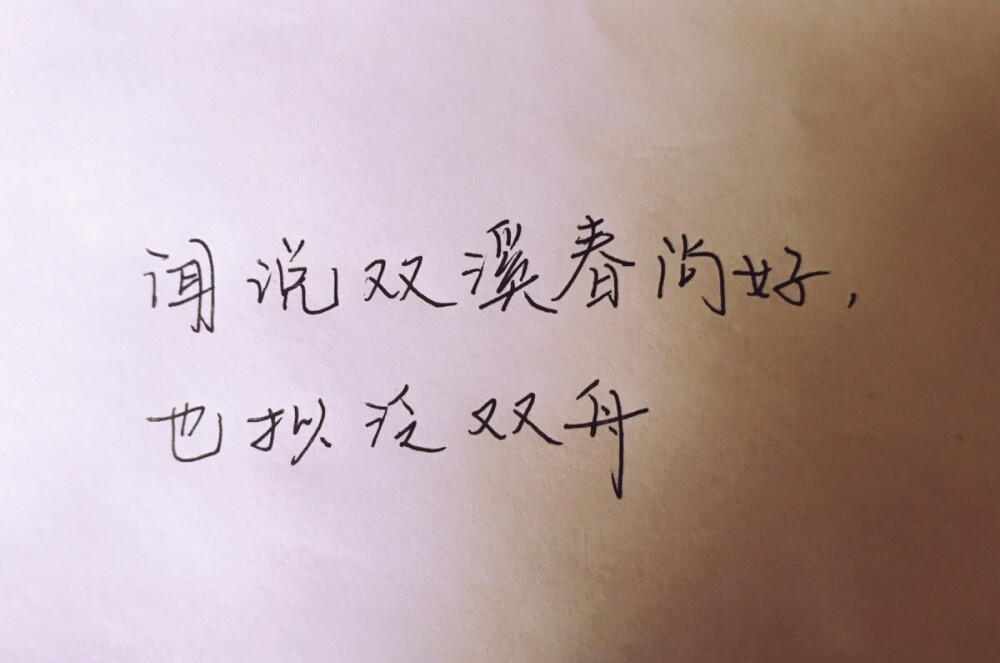 闻说双溪春尚好，
也拟泛双舟